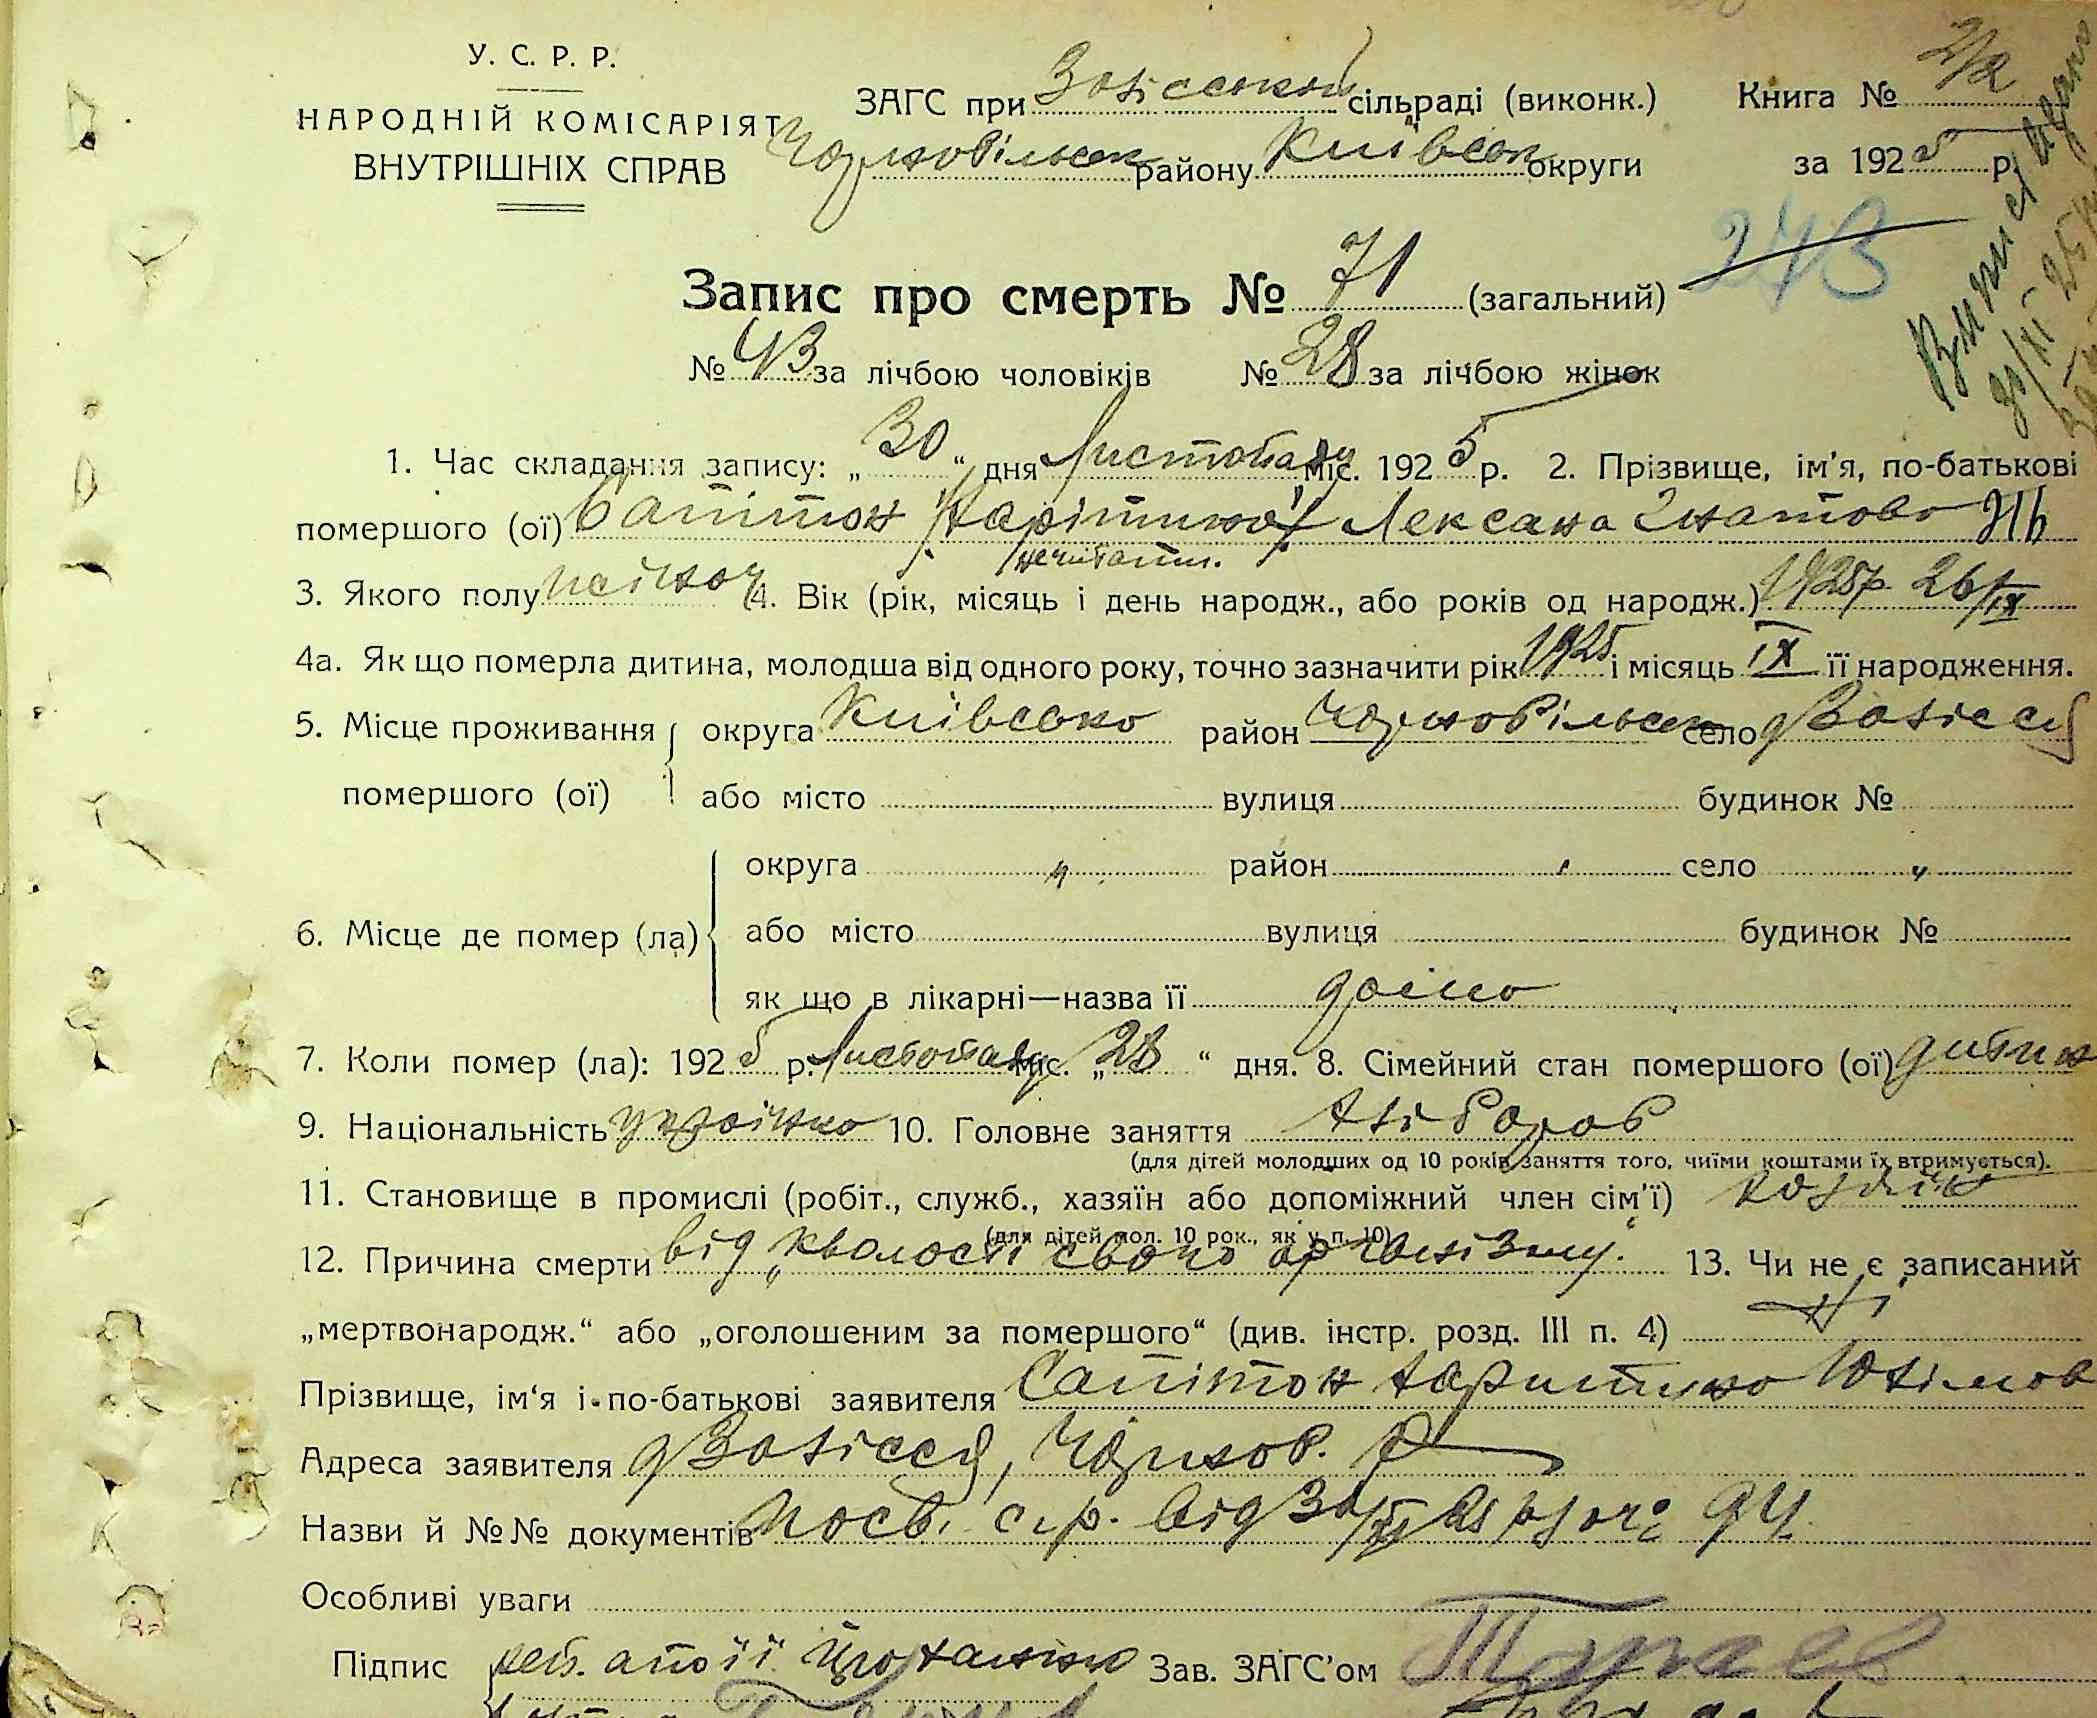 У. С. Р. Р.
НАРОДНІЙ КОМІСАРІЯТ
ВНУТРІШНІХ СПРАВ
ЗАГС при Залісській сільраді (виконк.)
Чорнобильск району Київськ округи
Книга № 2/2
за 1925 р.
273
Запис про смерть № 71 (загальний)
№ 43 за лічбою чоловіків № 28 за лічбою жінок
1. Час складання запису: „30“ дня Листопаду міс. 1925 р. 2. Прізвище, ім'я, по-батькові
помершого (ої) Сапітон Лександа Гнатовн
3. Якого полу жіноч 4. Вік (рік, місяць і день народж., або років од народж.) 1925р. 26/IX
4а. Як що померла дитина, молодша від одного року, точно зазначити рік 1925 і місяць IX її народження.
5. Місце проживання помершого (ої) округа Київсько район Чорнобільськ село Залісся
або місто вулиця будинок №
6. Місце де помер (ла) округа „ район „ село „
або місто вулиця будинок №
як що в лікарні—назва її дома
7. Коли помер (ла): 1925 р. Листопаду міс. „28“ дня. 8. Сімейний стан помершого (ої) дитин
9. Національність українка 10. Головне заняття хлібороб
(для дітей молодших од 10 років заняття того, чиїми коштами їх втримується).
11. Становище в промислі (робіт., служб., хазяїн або допоміжний член сім'ї) хозяїн
(для дітей мол. 10 рок., як у п. 10)
12. Причина смерти від „кволості свого організму“ 13. Чи не є записаний
„мертвонародж.“ або „оголошеним за помершого“ (див. інстр. розд. III п. 4) ні
Прізвище, ім'я і по-батькові заявителя Сапітон Юхімов
Адреса заявителя Залісся, Чорноб. р
Назви й №№ документів Посв. с.р. від 30/XI 25 94
Особливі уваги
Підпис Зав. ЗАГС'ом